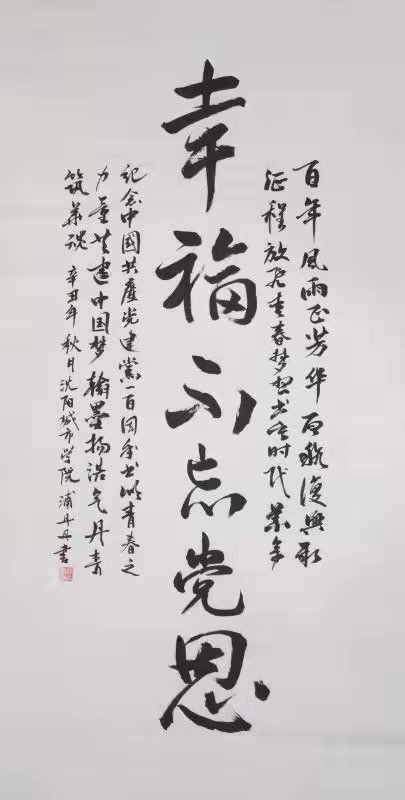 百年風雨正芳华復興新
征程放飞青春梦想书时代
幸福不忘党恩
記念中國共產党建黨一百周年书以青春之
力量共建中国梦翰墨扬浩气丹青
筑華魂 辛丑年秋月沈阳城市学院浦丹丹書